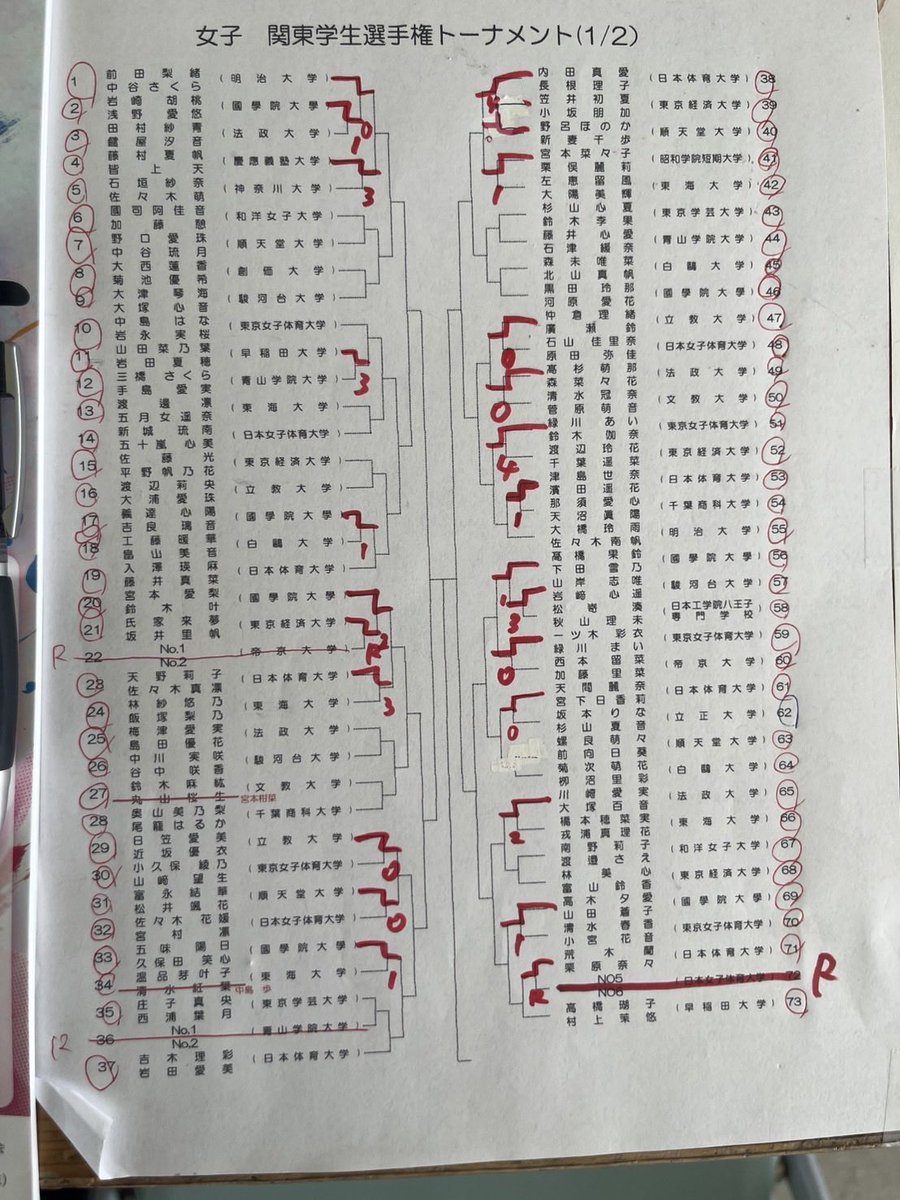 女子 関東学生選手権トーナメント(1/2)
1 前田梨緒 中谷さくら (明治大学)
2 岩崎胡桃 浅野愛悠 (國學院大學)
3 田村紗青 鑓屋汐音 (法政大学)
4 藤村夏帆 皆上天 (慶應義塾大学)
5 石垣紗奈 佐々木萌 (神奈川大学)
6 國司阿佳音 加藤憩 (和洋女子大学)
7 野口愛珠 中谷琉月 (順天堂大学)
8 大西蓮香 菊池優希 (創価大学)
9 大津琴海 大塚心音 (駿河台大学)
10 中島はな 岩永実桜 (東京女子体育大学)
11 山田菜乃葉 岩田夏穂 (早稲田大学)
12 三橋さくら 手島愛実 (青山学院大学)
13 渡邊凛 五月女遥奈 (東海大学)
14 新城琉南 五十嵐心美 (日本女子体育大学)
15 佐藤光 平野帆乃花 (東京経済大学)
16 渡辺莉央 大浦愛珠 (立教大学)
17 義達心陽 吉良璃音 (國學院大學)
18 工藤暖華 畠山美音 (白鷗大学)
19 入澤瑛麻 藤井真菜 (日本体育大学)
20 宮本愛梨 鈴木叶 (國學院大學)
21 氏家来夢 坂井里帆 (東京経済大学)
R 22 No.1 No.2 (帝京大学) R
23 天野莉子 佐々木真凛 (日本体育大学)
24 林紗悠乃 飯塚梨乃 (東海大学)
25 梅津愛実 島田優花 (法政大学)
26 中川実咲 谷中咲香 (駿河台大学)
27 鈴木麻紘 丸山桜生 宮本柑菜 (文教大学)
28 奥山美乃梨 尾籠はるか (千葉商科大学)
29 日笠愛美 近坂優衣 (立教大学)
30 小久保綾乃 山﨑望生 (東京女子体育大学)
31 富永結華 松井颯花 (順天堂大学)
32 佐々木花媛 宮村凛 (日本女子体育大学)
33 五味陽日 久保田笑心 (國學院大學)
34 温品芽叶子 清水紅葉 中島歩 (東海大学)
35 庄子真央 西浦葉月 (東京学芸大学)
R 36 No.1 No.2 (青山学院大学)
37 吉木理彩 岩田愛美 (日本体育大学)
内田真愛 長根理子 (日本体育大学) 38
笠井初夏 小坂朋加 (東京経済大学) 39
野呂ほのか 新妻千歩 (順天堂大学) 40
宮本菜々子 栗俣麗莉 (昭和学院短期大学) 41
左恵留風 大陽美輝 (東海大学) 42
杉山心夏 鈴木李果 (東京学芸大学) 43
藤井心愛 石津綾奈 (青山学院大学) 44
森未唯菜 北山真帆 (白鷗大学) 45
黒田玲那 河原愛花 (國學院大學) 46
仲倉理緒 廣瀬鈴 (立教大学) 47
石山佳里奈 原田弥佳 (日本女子体育大学) 48
高杉萌那 森菜々花 (法政大学) 49
清水冠奈 菅原萌音 (文教大学) 50
緑川あい 鈴木伽奈 (東京女子体育大学) 51
渡辺玲花 千葉遥菜 (東京経済大学) 52
津島世奈 濱田遥花 (日本体育大学) 53
那須愛心 天沼眞陽 (千葉商科大学) 54
大橋玲雨 佐々木南帆 (明治大学) 55
高橋果鈴 下田雪乃 (國學院大學) 56
山岸志唯 岩﨑心遥 (駿河台大学) 57
松嵜湊 秋山理未 (日本工学院八王子専門学校) 58
一ツ木彩衣 緑川まい (東京女子体育大学) 59
西本留菜 加藤里菜 (帝京大学) 60
天間麗奈 宮下日香莉 (日本体育大学) 61
坂本りな 杉山夏音 (立正大学) 62
螺良萌々 前向日葵 (順天堂大学) 63
菊次萌花 柳沼里彩 (白鷗大学) 64
川﨑愛実 大塚百音 (法政大学) 65
橋本穂真実 戎浦菜理花 (東海大学) 66
南野莉子 渡邉さえ (和洋女子大学) 67
林美心 富山鈴香 (東京経済大学) 68
高木夕愛 山田蒼子 (國學院大學) 69
清水春香 小宮花音 (東京女子体育大学) 70
荒木蘭 栗原奈々 (日本体育大学) 71
NO5 NO6 (日本女子体育大学) 72 R
高橋瑚子 村上茉悠 (早稲田大学) 73